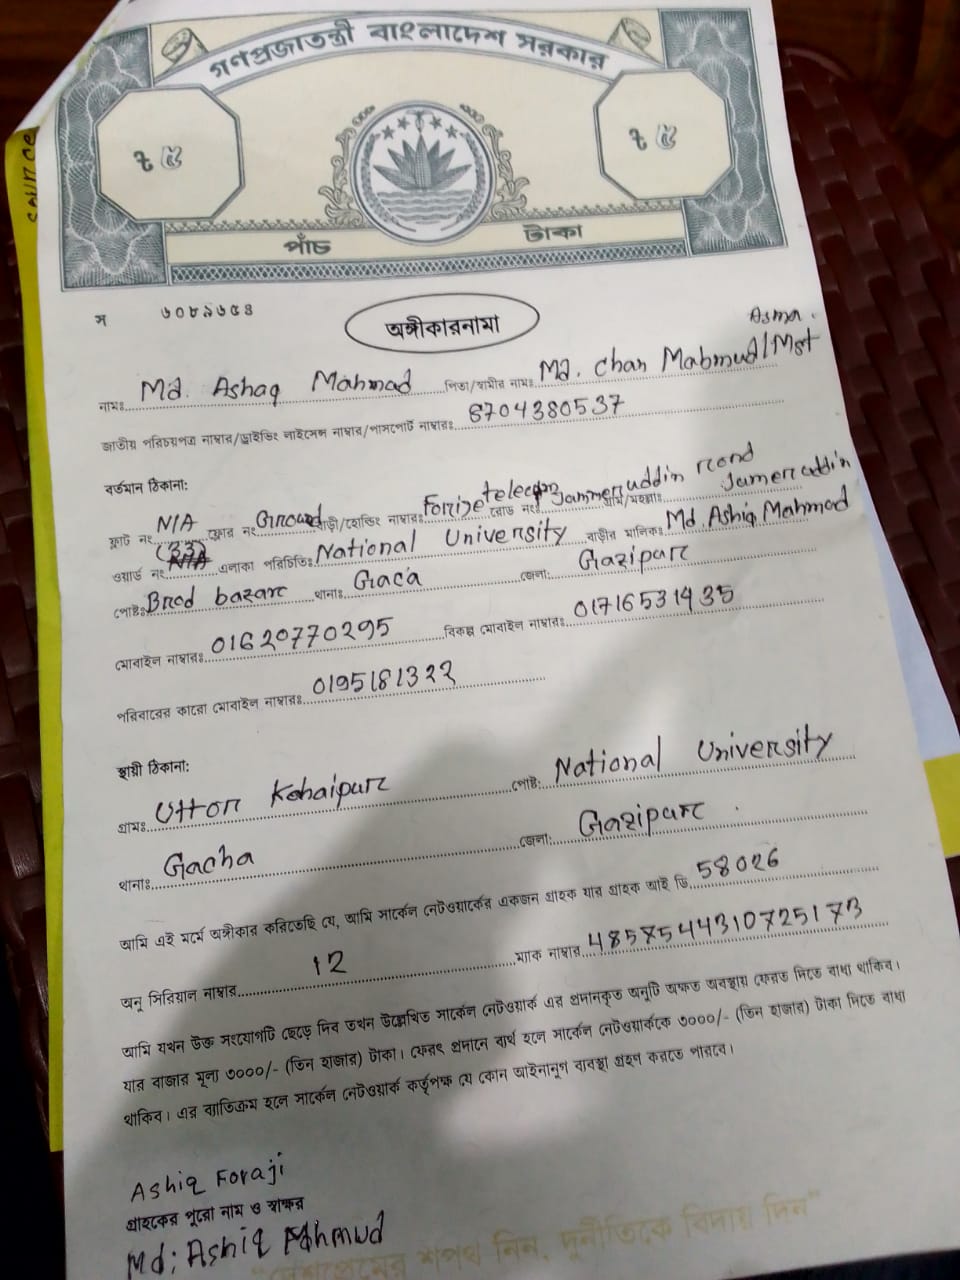 গণপ্রজাতন্ত্রী বাংলাদেশ সরকার
৳ ৫ ৳ ৫
পাঁচ টাকা
source
স ৬০৮৯৬৫৪
অঙ্গীকারনামা
Asma.
নামঃ Md. Ashaq Mahmad পিতা/স্বামীর নামঃ Md. Chan Mabmud/Mst
জাতীয় পরিচয়পত্র নাম্বার/ড্রাইভিং লাইসেন্স নাম্বার/পাসপোর্ট নাম্বারঃ 8704380537
বর্তমান ঠিকানা:
ফ্লাট নং N/A ফ্লোর নং Ground বাড়ী/হোল্ডিং নাম্বারঃ telecom রোড নং Jammeruddin road গ্রাম/মহল্লাঃ Jameruddin
ওয়ার্ড নং (33) এলাকা পরিচিতিঃ National University বাড়ীর মালিকঃ Md Ashiq Mahmod
পোষ্টঃ Brod bazar থানাঃ Gaca জেলা: Gazipur
মোবাইল নাম্বারঃ 01620770295 বিকল্প মোবাইল নাম্বারঃ 01716531435
পরিবারের কারো মোবাইল নাম্বারঃ 0195181322
স্থায়ী ঠিকানা:
গ্রামঃ Uttor পোষ্ট: National University
থানাঃ Gacha জেলা: Gazipur
আমি এই মর্মে অঙ্গীকার করিতেছি যে, আমি সার্কেল নেটওয়ার্কের একজন গ্রাহক যার গ্রাহক আই ডি 58026
অনু সিরিয়াল নাম্বার 12 ম্যাক নাম্বার 4857544310725173
আমি যখন উক্ত সংযোগটি ছেড়ে দিব তখন উল্লেখিত সার্কেল নেটওয়ার্ক এর প্রদানকৃত অনুটি অক্ষত অবস্থায় ফেরত দিতে বাধ্য থাকিব।
যার বাজার মূল্য ৩০০০/- (তিন হাজার) টাকা। ফেরৎ প্রদানে ব্যর্থ হলে সার্কেল নেটওয়ার্ককে ৩০০০/- (তিন হাজার) টাকা দিতে বাধ্য
থাকিব। এর ব্যতিক্রম হলে সার্কেল নেটওয়ার্ক কর্তৃপক্ষ যে কোন আইনানুগ ব্যবস্থা গ্রহণ করতে পারবে।
Ashiq Foraji
গ্রাহকের পুরো নাম ও স্বাক্ষর
Md: Ashiq Mahmud
"দেশপ্রেমের শপথ নিন, দুর্নীতিকে বিদায় দিন"